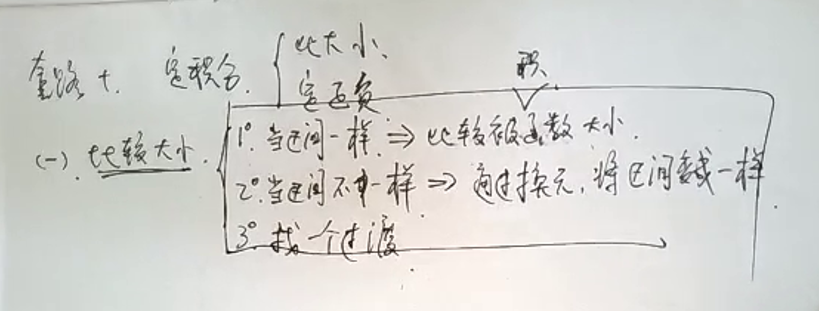 套路十. 定积分. { 比大小、
定正负
(一). 比较大小. { 1°. 当区间一样. ⇒ 比较被积函数大小.
2°. 当区间不一样 ⇒ 通过换元, 将区间变成一样.
3°. 找一个过渡